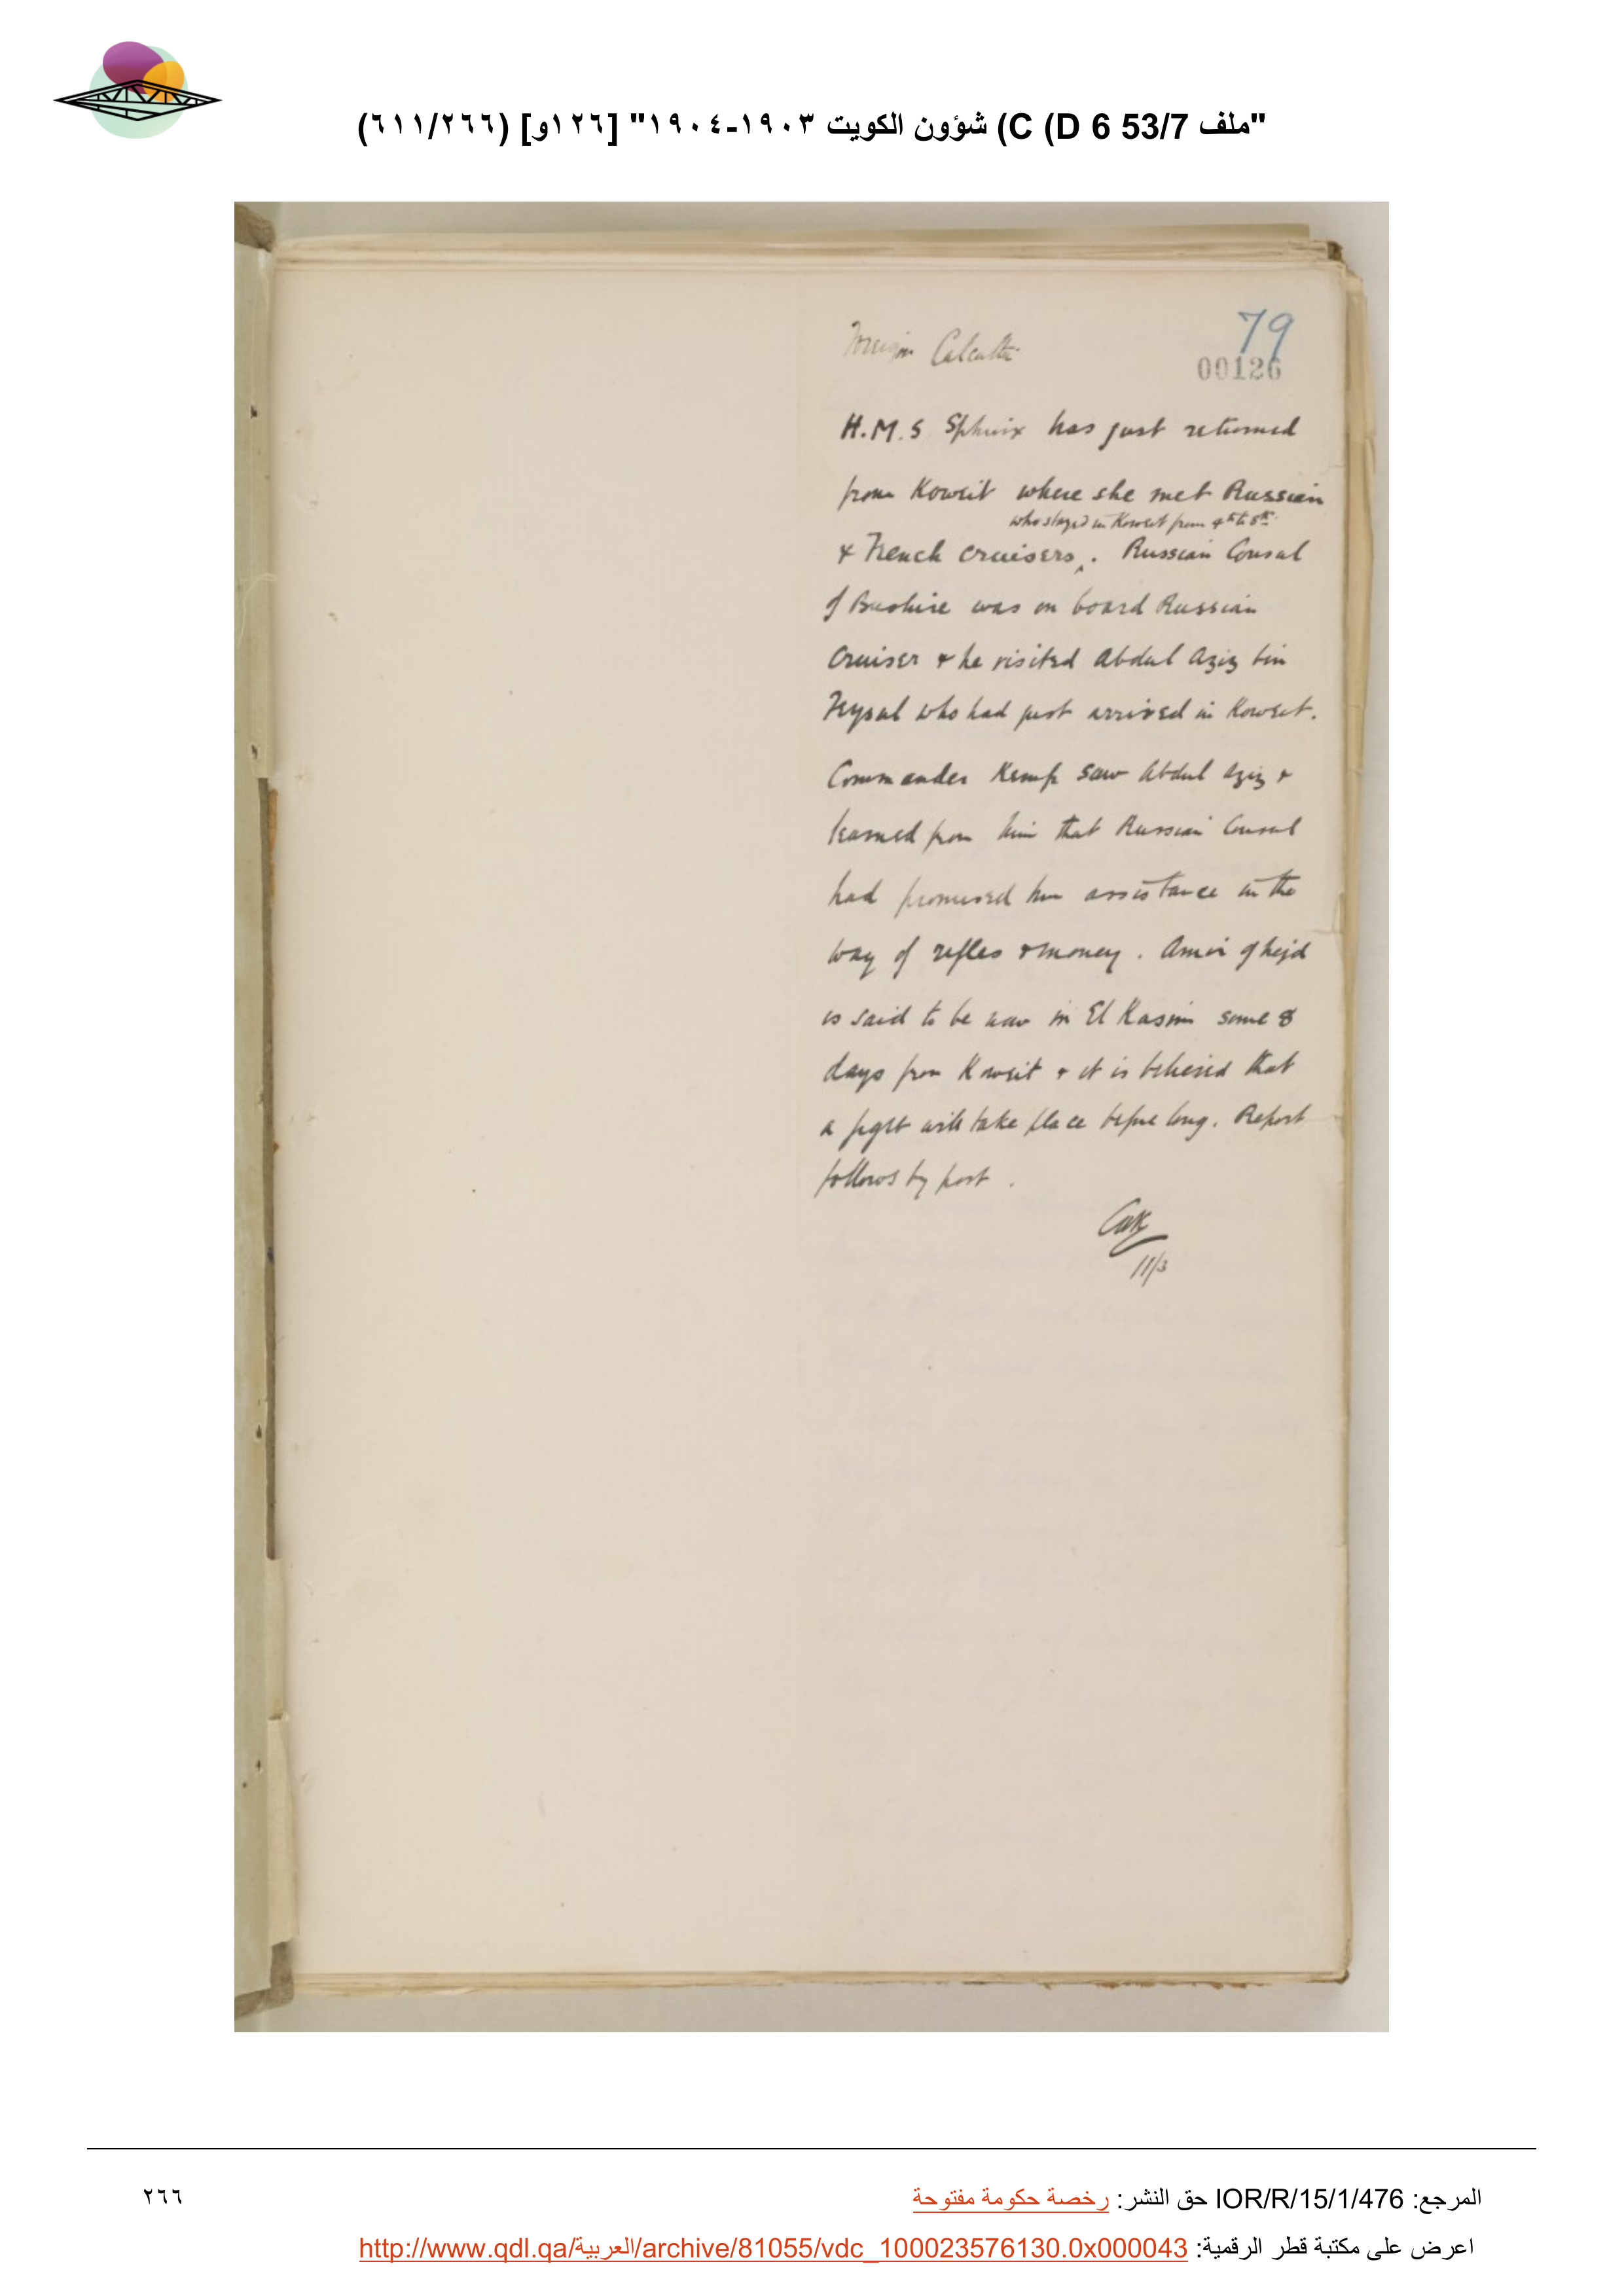 "ملف 53/7 D 6) C) شؤون الكويت ١٩٠٣-١٩٠٤" [١٢٦و] (٦١١/٢٦٦)
79
Foreign Calcutta
00126
H.M.S Sphinx has just returned
from Koweit where she met Russian
who stayed in Koweit from 4th to 8th.
& French cruisers. Russian Consul
of Bushire was on board Russian
Cruiser & he visited Abdul Aziz bin
Feysul who had just arrived in Koweit.
Commander Kemp saw Abdul Aziz &
learned from him that Russian Consul
had promised him assistance in the
way of rifles & money. Amir of Nejd
is said to be now in El Kasim some 8
days from Koweit & it is believed that
a fight will take place before long. Report
follows by post.
11/3
المرجع: IOR/R/15/1/476 حق النشر: رخصة حكومة مفتوحة
٢٦٦
اعرض على مكتبة قطر الرقمية: http://www.qdl.qa/العربية/archive/81055/vdc_100023576130.0x000043